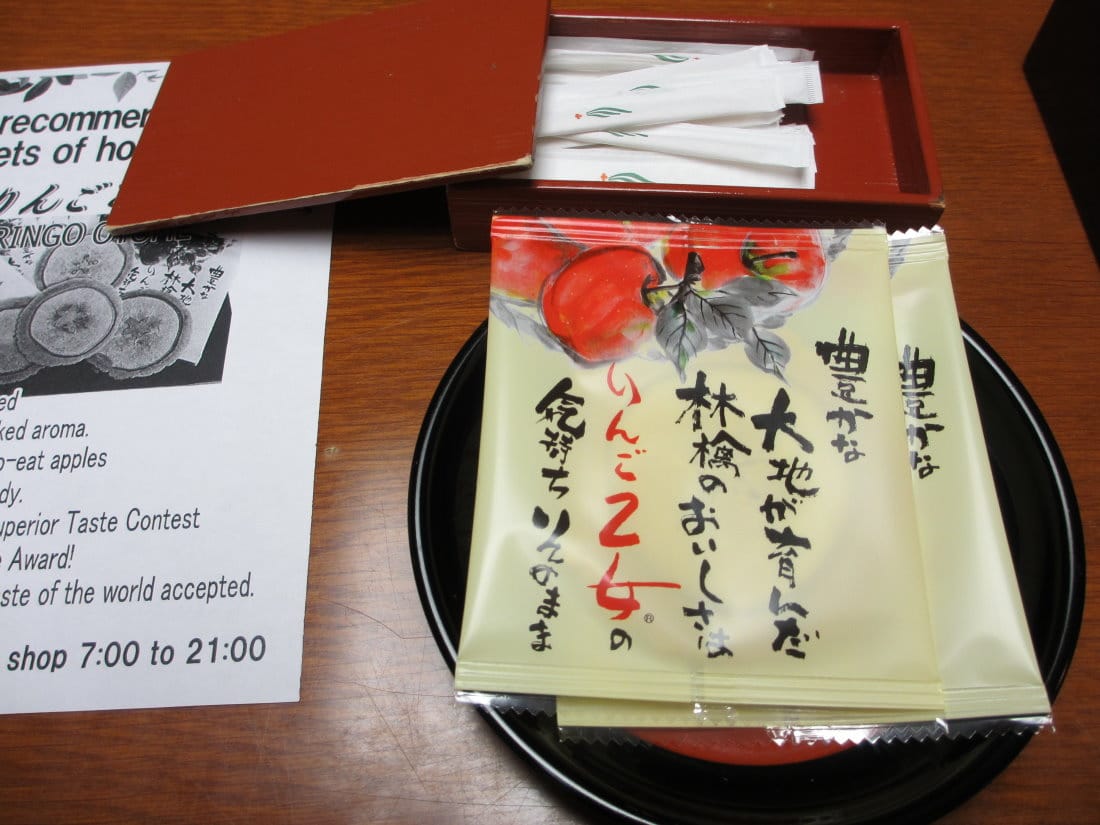 recommen
ets of ho
りんご
RINGO OTOME
ed
ked aroma.
o-eat apples
dy.
uperior Taste Contest
e Award!
aste of the world accepted.
shop 7:00 to 21:00
豊かな
大地が育んだ
林檎のおいしさは
りんご乙女®の
気持ちそのまま
豊かな